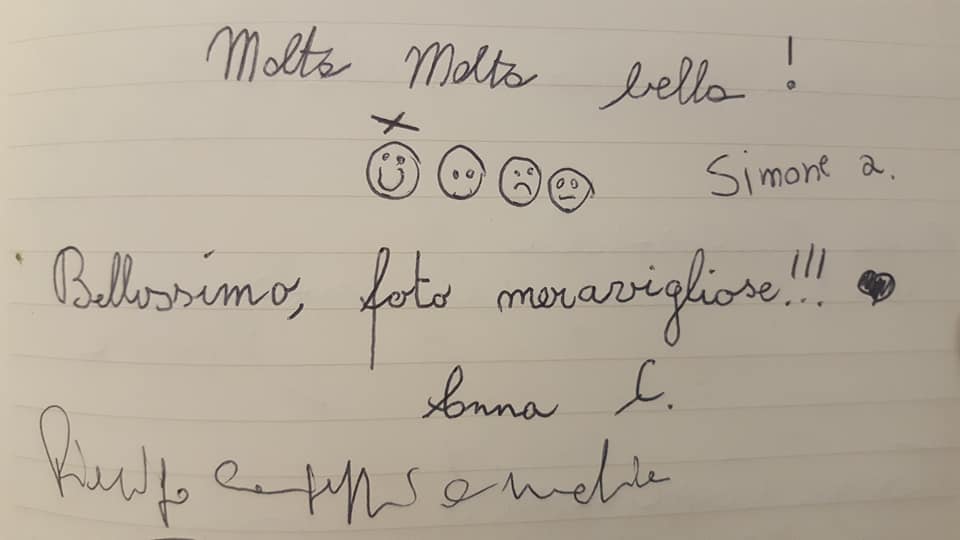 Molto Molto bello !
Simone a.
Bellissimo, foto meravigliose!!!
Anna C.